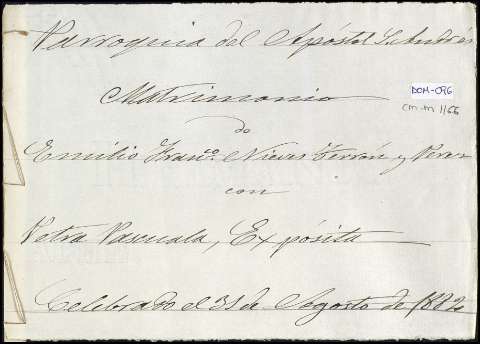 Parroquia del Apóstol S. Andrés
Matrimonio
DOM-096
cm-m 1/66
de
Emilio Franco. Nieves Ferrón y Perez
con
Petra Pascuala, Expósita
Celebrado el 31 de Agosto de 1882